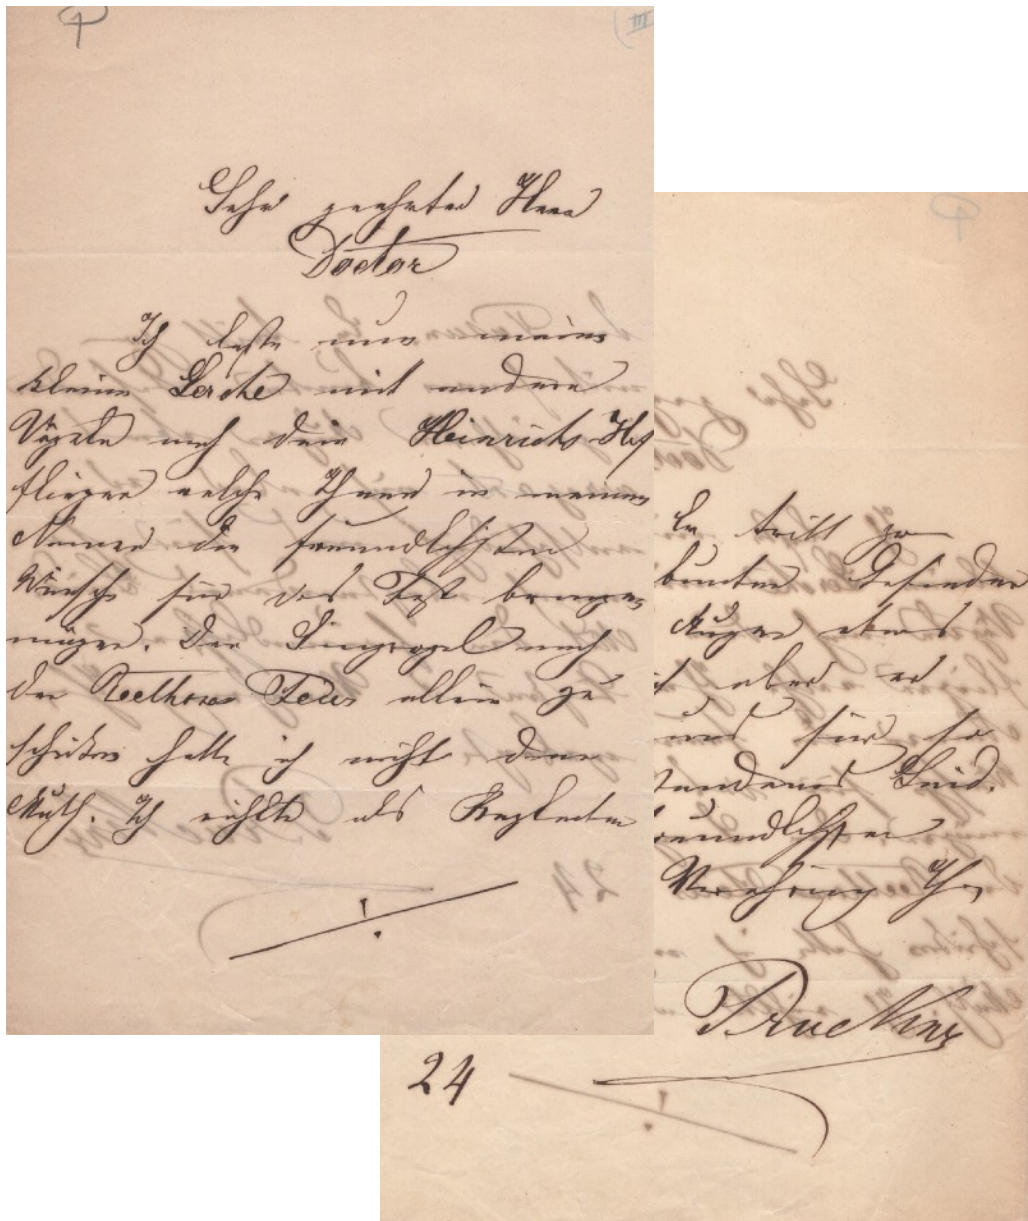 Sehr geehrter Herr
Doctor
Ich lasse nun meine
kleine Lerche mit andern
Vögeln nach dem Heinrichs Hof
fliegen welche Ihnen in meinem
Namen die freundlichsten
Wünsche für das Fest bringen
mögen. Den Singvogel nach
der Beethoven Feier allein zu
schicken hatte ich nicht den
Muth. Ich wählte als Begleiter
Er tritt zu
bunter
Auge etwas
aber er
uns für so
Leid.
freundlichster
Verehrung Ihr
Bruckner
24